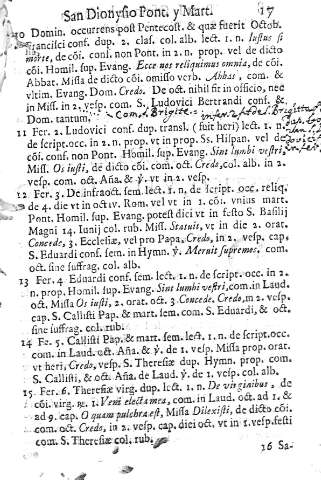 San Dionysio Pont. y Mart. 17
10 Domin. occurrens post Pentecost. & quæ fuerit Octob.
Francisci conf. dup. 2. clas. col. alb. lect. 1. n. Iustus si
morte, de cõi. conf. non Pont. in 2. n. prop. vel de dicto
cõi. Homil. sup. Evang. Ecce nos reliquimus omnia, de cõi.
Abbat. Missa de dicto cõi. omisso verb. Abbas, com. &
vltim. Evang. Dom. Credo. De oct. nihil fit in officio, nec
in Miss. in 2. vesp. com. S. Ludovici Bertrandi conf. &
Dom. tantum. Com. S. Brigitte
11 Fer. 2. Ludovici conf. dup. transl. (fuit heri) lect. 1. n.
de script. occ. in 2. n. prop. vt in prop. Ss. Hispan. vel de
cõi. conf. non Pont. Homil. sup. Evang. Sint lumbi vestri,
Miss. Os iusti, de dicto cõi. com. oct. Credo, col. alb. in 2.
vesp. com. oct. Aña. & ℣. vt in 2. vesp.
12 Fer. 3. De infraoct. sem. lect. 1. n. de script. occ. reliq.
de 4. die vt in octav. Rom. vel vt in 1. cõi. vnius mart.
Pont. Homil. sup. Evang. potest dici vt in festo S. Basilij
Magni 14. Iunij col. rub. Miss. Statuit, vt in die 2. orat.
Concede, 3. Ecclesiæ, vel pro Papa, Credo, in 2. vesp. cap.
S. Eduardi conf. sem. in Hymn. ℣. Meruit supremos, com.
oct. sine suffrag. col. alb.
13 Fer. 4. Eduardi conf. sem. lect. 1. n. de script. occ. in 2.
n. prop. Homil. sup. Evang. Sint lumbi vestri, com. in Laud.
oct. Missa Os iusti, 2. orat. oct. 3. Concede. Credo, in 2. vesp.
cap. S. Callisti Pap. & mart. sem. com. S. Eduardi, & oct.
sine suffrag. col. rub.
14 Fe. 5. Callisti Pap. & mart. sem. lect. 1. n. de script. occ.
com. in Laud. oct. Aña. & ℣. de 1. vesp. Missa prop. orat.
vt heri, Credo, vesp. S. Theresiæ dup. Hymn. prop. com.
S. Callisti, & oct. Aña. de Laud. ℣. de 1. vesp. col. alb.
15 Fer. 6. Theresiæ virg. dup. lect. 1. n. De virginibus, de
cõi. virg. ℟. 1. Veni electa mea, com. in Laud. oct. ad 1. &
ad 9. cap. O quam pulchra est, Missa Dilexisti, de dicto cõi.
com. oct. Credo, in 2. vesp. cap. dici oct. vt in 1. vesp. festi
com. S. Theresiæ col. rub.
16 Sa-